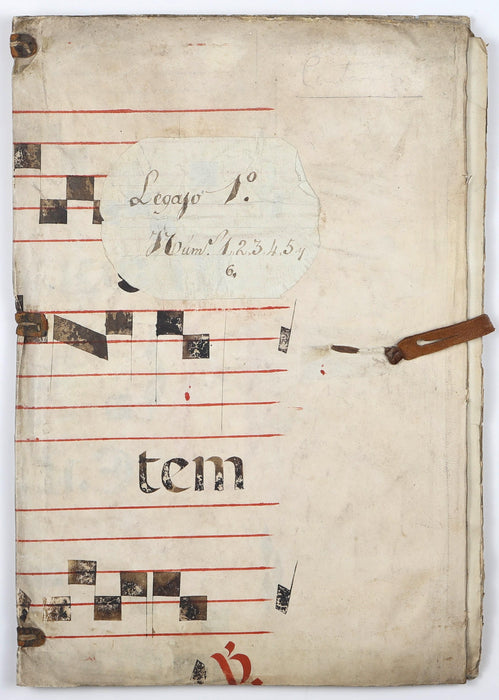 Legajo 1º
Núm.º 1,2,3,4,5 y
6.
tem
℟.